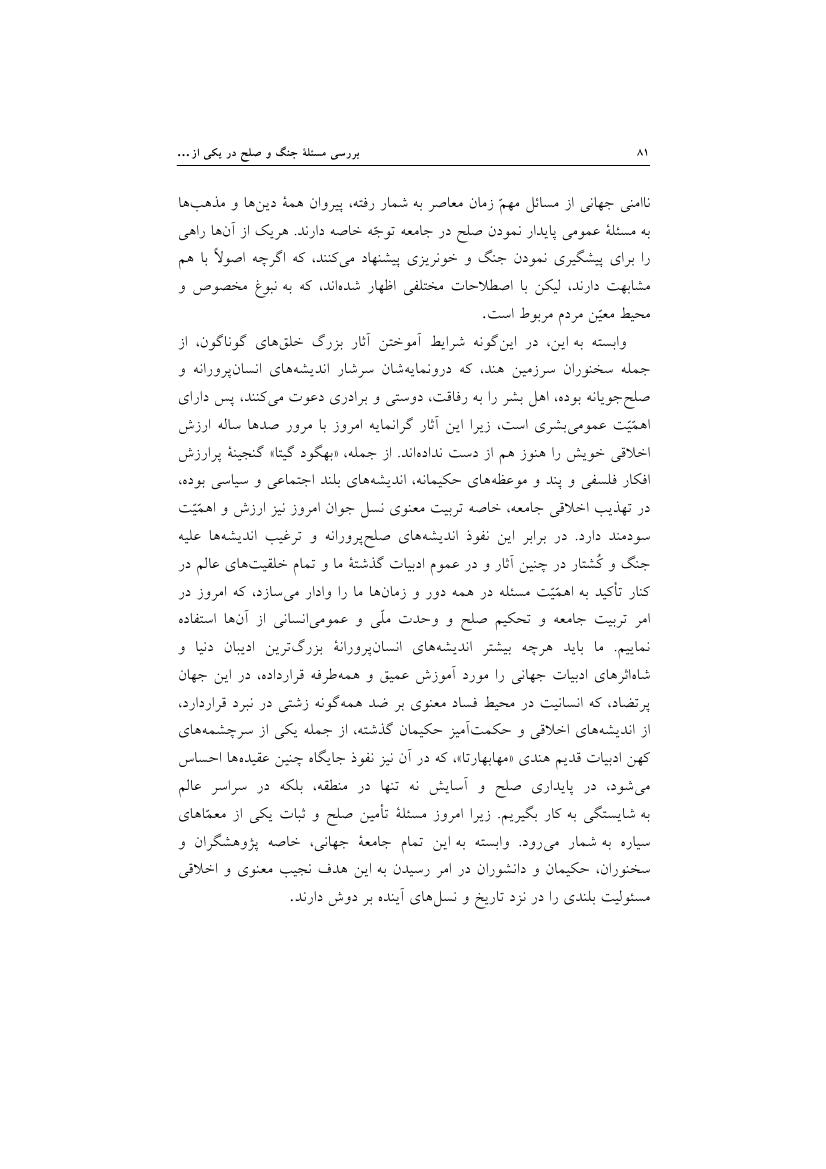 ۸۱ بررسی مسئلهٔ جنگ و صلح در یکی از ...
ناامنی جهانی از مسائل مهمّ زمان معاصر به شمار رفته، پیروان همهٔ دین‌ها و مذهب‌ها
به مسئلهٔ عمومی پایدار نمودن صلح در جامعه توجّه خاصه دارند. هریک از آن‌ها راهی
را برای پیشگیری نمودن جنگ و خونریزی پیشنهاد می‌کنند، که اگرچه اصولاً با هم
مشابهت دارند، لیکن با اصطلاحات مختلفی اظهار شده‌اند، که به نبوغ مخصوص و
محیط معیّن مردم مربوط است.
وابسته به این، در این‌گونه شرایط آموختن آثار بزرگ خلق‌های گوناگون، از
جمله سخنوران سرزمین هند، که درونمایه‌شان سرشار اندیشه‌های انسان‌پرورانه و
صلح‌جویانه بوده، اهل بشر را به رفاقت، دوستی و برادری دعوت می‌کنند، پس دارای
اهمّیّت عمومی‌بشری است، زیرا این آثار گرانمایه امروز با مرور صدها ساله ارزش
اخلاقی خویش را هنوز هم از دست نداده‌اند. از جمله، «بهگود گیتا» گنجینهٔ پرارزش
افکار فلسفی و پند و موعظه‌های حکیمانه، اندیشه‌های بلند اجتماعی و سیاسی بوده،
در تهذیب اخلاقی جامعه، خاصه تربیت معنوی نسل جوان امروز نیز ارزش و اهمّیّت
سودمند دارد. در برابر این نفوذ اندیشه‌های صلح‌پرورانه و ترغیب اندیشه‌ها علیه
جنگ و کُشتار در چنین آثار و در عموم ادبیات گذشتهٔ ما و تمام خلقیت‌های عالم در
کنار تأکید به اهمّیّت مسئله در همه دور و زمان‌ها ما را وادار می‌سازد، که امروز در
امر تربیت جامعه و تحکیم صلح و وحدت ملّی و عمومی‌انسانی از آن‌ها استفاده
نماییم. ما باید هرچه بیشتر اندیشه‌های انسان‌پرورانهٔ بزرگ‌ترین ادیبان دنیا و
شاه‌اثرهای ادبیات جهانی را مورد آموزش عمیق و همه‌طرفه قرارداده، در این جهان
پرتضاد، که انسانیت در محیط فساد معنوی بر ضد همه‌گونه زشتی در نبرد قراردارد،
از اندیشه‌های اخلاقی و حکمت‌آمیز حکیمان گذشته، از جمله یکی از سرچشمه‌های
کهن ادبیات قدیم هندی «مهابهارتا»، که در آن نیز نفوذ جایگاه چنین عقیده‌ها احساس
می‌شود، در پایداری صلح و آسایش نه تنها در منطقه، بلکه در سراسر عالم
به شایستگی به کار بگیریم. زیرا امروز مسئلهٔ تأمین صلح و ثبات یکی از معمّاهای
سیاره به شمار می‌رود. وابسته به این تمام جامعهٔ جهانی، خاصه پژوهشگران و
سخنوران، حکیمان و دانشوران در امر رسیدن به این هدف نجیب معنوی و اخلاقی
مسئولیت بلندی را در نزد تاریخ و نسل‌های آینده بر دوش دارند.